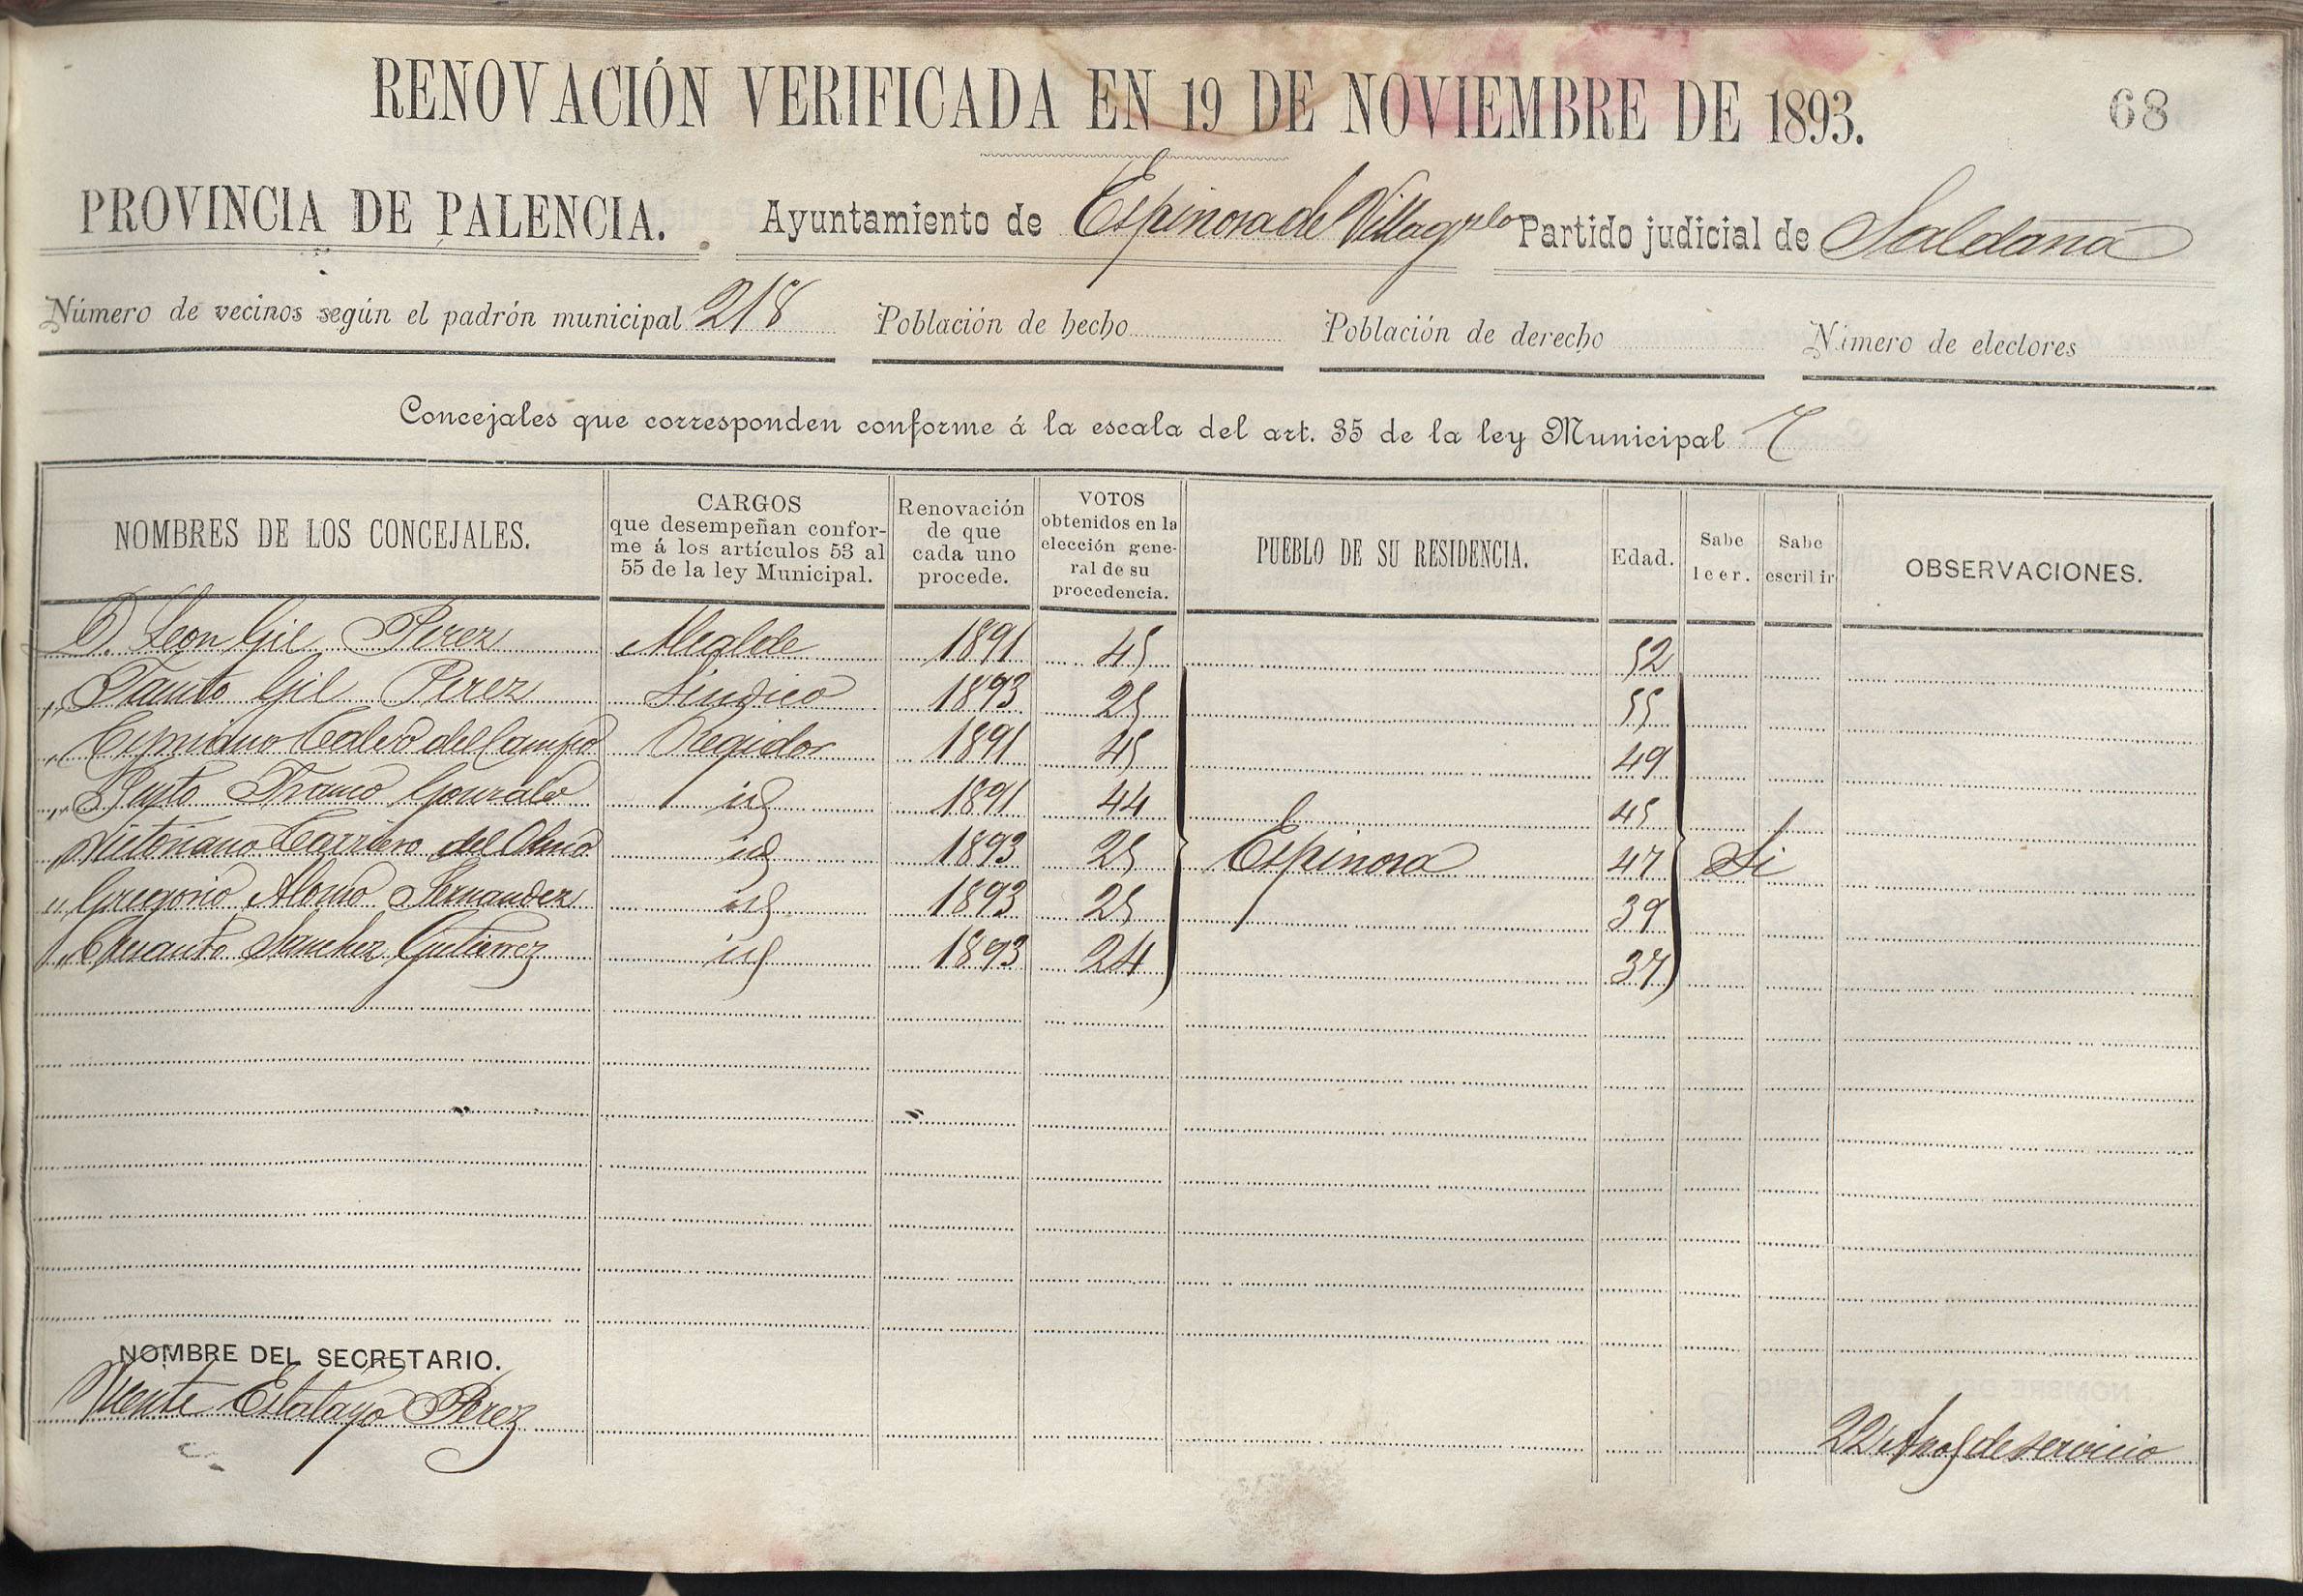 RENOVACIÓN VERIFICADA EN 19 DE NOVIEMBRE DE 1893.
68
PROVINCIA DE PALENCIA. Ayuntamiento de Espinosa de Villagzlo Partido judicial de Saldaña
Número de vecinos según el padrón municipal 218 Población de hecho Población de derecho Número de electores
Concejales que corresponden conforme á la escala del art. 35 de la ley Municipal 7
NOMBRES DE LOS CONCEJALES. CARGOS que desempeñan conforme á los artículos 53 al 55 de la ley Municipal. Renovación de que cada uno procede. VOTOS obtenidos en la elección general de su procedencia. PUEBLO DE SU RESIDENCIA. Edad. Sabe leer. Sabe escribir OBSERVACIONES.
D. Leon Gil Perez Alcalde 1891 45 52
" Gil Perez Sindico 1893 25 55
" Cipriano Calvo del Campo Regidor 1891 45 49
" Justo Franco Gonzalo id 1891 44 45
" Victoriano del Olmo id 1893 25 Espinosa 47 Si
" Gregorio Alonso Fernandez id 1893 25 39
" Sanchez Gutierrez id 1893 24 37
NOMBRE DEL SECRETARIO.
Vicente Estalayo Pérez 22 Años de servicio